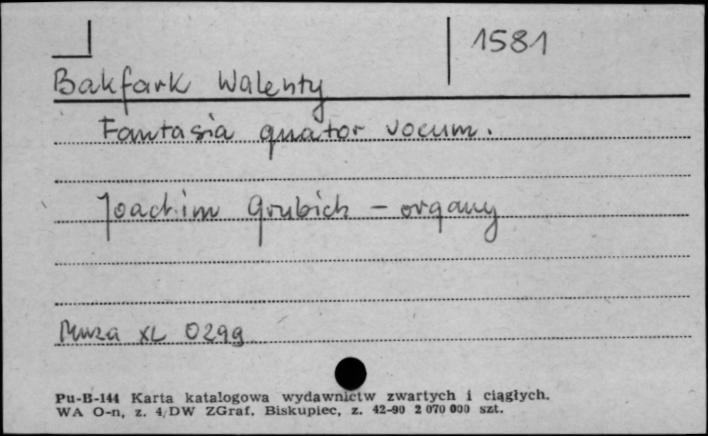 1581
Bakfark Walenty
Fantasia quator vocum.
Joachim Grubich - organy
Muza XL 0299
Pu-B-144 Karta katalogowa wydawnictw zwartych i ciągłych.
WA O-n, z. 4/DW ZGraf. Biskupiec, z. 42-90 2 070 000 szt.